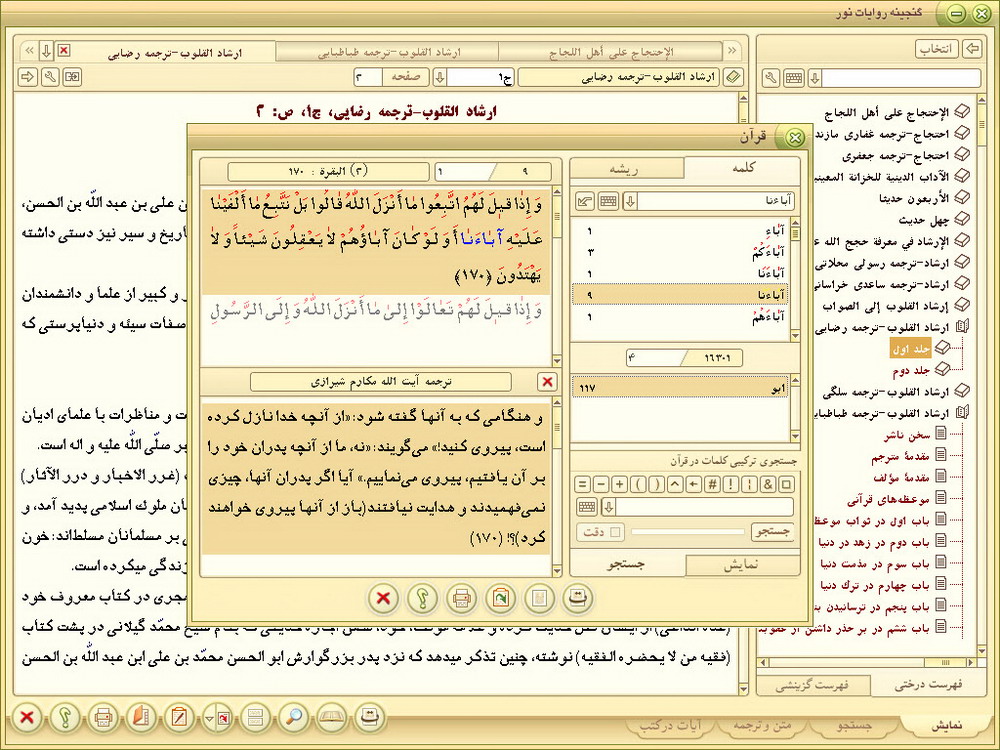 گنجینه روایات نور
انتخاب
الإحتجاج على أهل اللجاج
ارشاد القلوب-ترجمه طباطبایی
ارشاد القلوب-ترجمه رضایی
ارشاد القلوب-ترجمه رضایی
ج۱
صفحه
۲
ارشاد القلوب-ترجمه رضایی، ج۱، ص: ۲
الإحتجاج على أهل اللجاج
احتجاج-ترجمه غفاری مازند
احتجاج-ترجمه جعفری
الآداب الدینیة للخزانة المعینی
الأربعون حدیثا
چهل حدیث
الإرشاد في معرفة حجج الله ع
ارشاد-ترجمه رسولی محلاتی
ارشاد-ترجمه ساعدی خراسانی
إرشاد القلوب إلى الصواب
ارشاد القلوب-ترجمه رضایی
جلد اول
جلد دوم
ارشاد القلوب-ترجمه سلگی
ارشاد القلوب-ترجمه طباطبای
سخن ناشر
مقدمهٔ مترجم
مقدمهٔ مؤلف
موعظه‌های قرآنی
باب اول در ثواب موعظ
باب دوم در زهد در دنیا
باب سوم در مذمت دنیا
باب چهارم در ترك دنیا
باب پنجم در ترسانیدن بن
باب ششم در بر حذر داشتن از عقوبت
فهرست درختی
فهرست گزینشی
قرآن
کلمه
ریشه
آباءنا
آبَاءِ ۱
آبَاءَكُمْ ۳
آبَاءَنَا ۱
آباءنا ۹
آبَاءَهُمْ ۱
۱۶۳۰۱ / ۴
ابو ۱۱۷
جستجوی ترکیبی کلمات در قرآن
= − + ( ) ^ ← # ! ¦ & □
جستجو
دقت
نمایش
جستجو
۹ / ۱
(۲) البقرة : ۱۷۰
وَ إِذا قيلَ لَهُمُ اتَّبِعُوا ما أَنْزَلَ اللَّهُ قالُوا بَلْ نَتَّبِعُ ما أَلْفَيْنا
عَلَيْهِ آباءَنا أَ وَ لَوْ كانَ آباؤُهُمْ لا يَعْقِلُونَ شَيْئاً وَ لا
يَهْتَدُونَ (۱۷۰)
وَ إِذا قيلَ لَهُمْ تَعالَوْا إِلى‏ ما أَنْزَلَ اللَّهُ وَ إِلَى الرَّسُولِ
ترجمه آیت الله مکارم شیرازی
و هنگامی که به آنها گفته شود: «از آنچه خدا نازل کرده
است، پیروی کنید!» می‌گویند: «نه، ما از آنچه پدران خود را
بر آن یافتیم، پیروی می‌نماییم.» آیا اگر پدران آنها، چیزی
نمی‌فهمیدند و هدایت نیافتند (باز از آنها پیروی خواهند
کرد)؟! (۱۷۰)
ن علی بن عبد اللّه بن الحسن،
أریخ و سیر نیز دستی داشته
ر و کبیر از علماٴ و دانشمندان
صفات سیئه و دنیاپرستی که
ت و مناظرات با علمآی ادیان
بر صلّی اللّه علیه و اله است.
(غرر الاخبار و درر الآثار)
ان ملوك اسلامی پدید آمد، و
بر مسلمانان مسلط‌اند: خون
زندگی میکرده است.
جری در کتاب معروف خود
شیخ محمّد گیلانی در پشت کتاب
(فقیه من لا یحضره الفقیه) نوشته، چنین تذکر میدهد که نزد پدر بزرگوارش ابو الحسن محمّد بن علی ابن عبد اللّه بن الحسن
نمایش
جستجو
متن و ترجمه
آیات در کتب